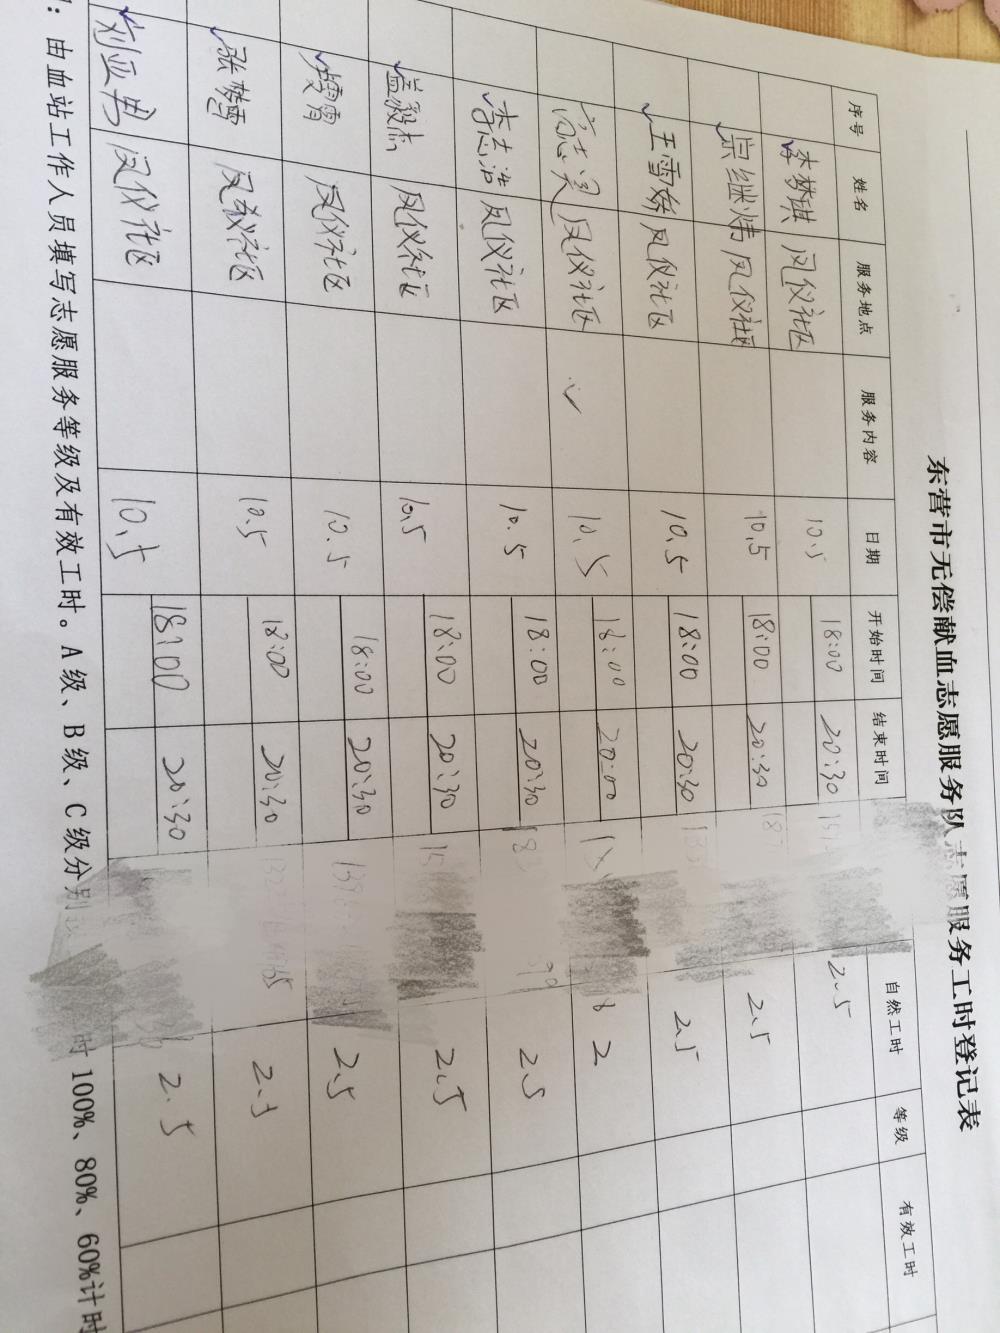 东营市无偿献血志愿服务队志愿服务工时登记表
序号 姓名 服务地点 服务内容 日期 开始时间 结束时间 自然工时 等级 有效工时
李梦琪 凤仪社区 10.5 18:00 20:30 2.5
宗继炜 凤仪社区 10.5 18:00 20:30 2.5
王雪娇 凤仪社区 10.5 18:00 20:30 2.5
高志昊 凤仪社区 10.5 18:00 20:00 2
李志浩 凤仪社区 10.5 18:00 20:30 2.5
盖毅杰 凤仪社区 10.5 18:00 20:30 2.5
凤仪社区 10.5 18:00 20:30 2.5
张梦雪 凤仪社区 10.5 18:00 20:30 2.5
刘亚男 凤仪社区 10.5 18:00 20:30 2.5
:由血站工作人员填写志愿服务等级及有效工时。A级、B级、C级分别 时100%、80%、60%计时